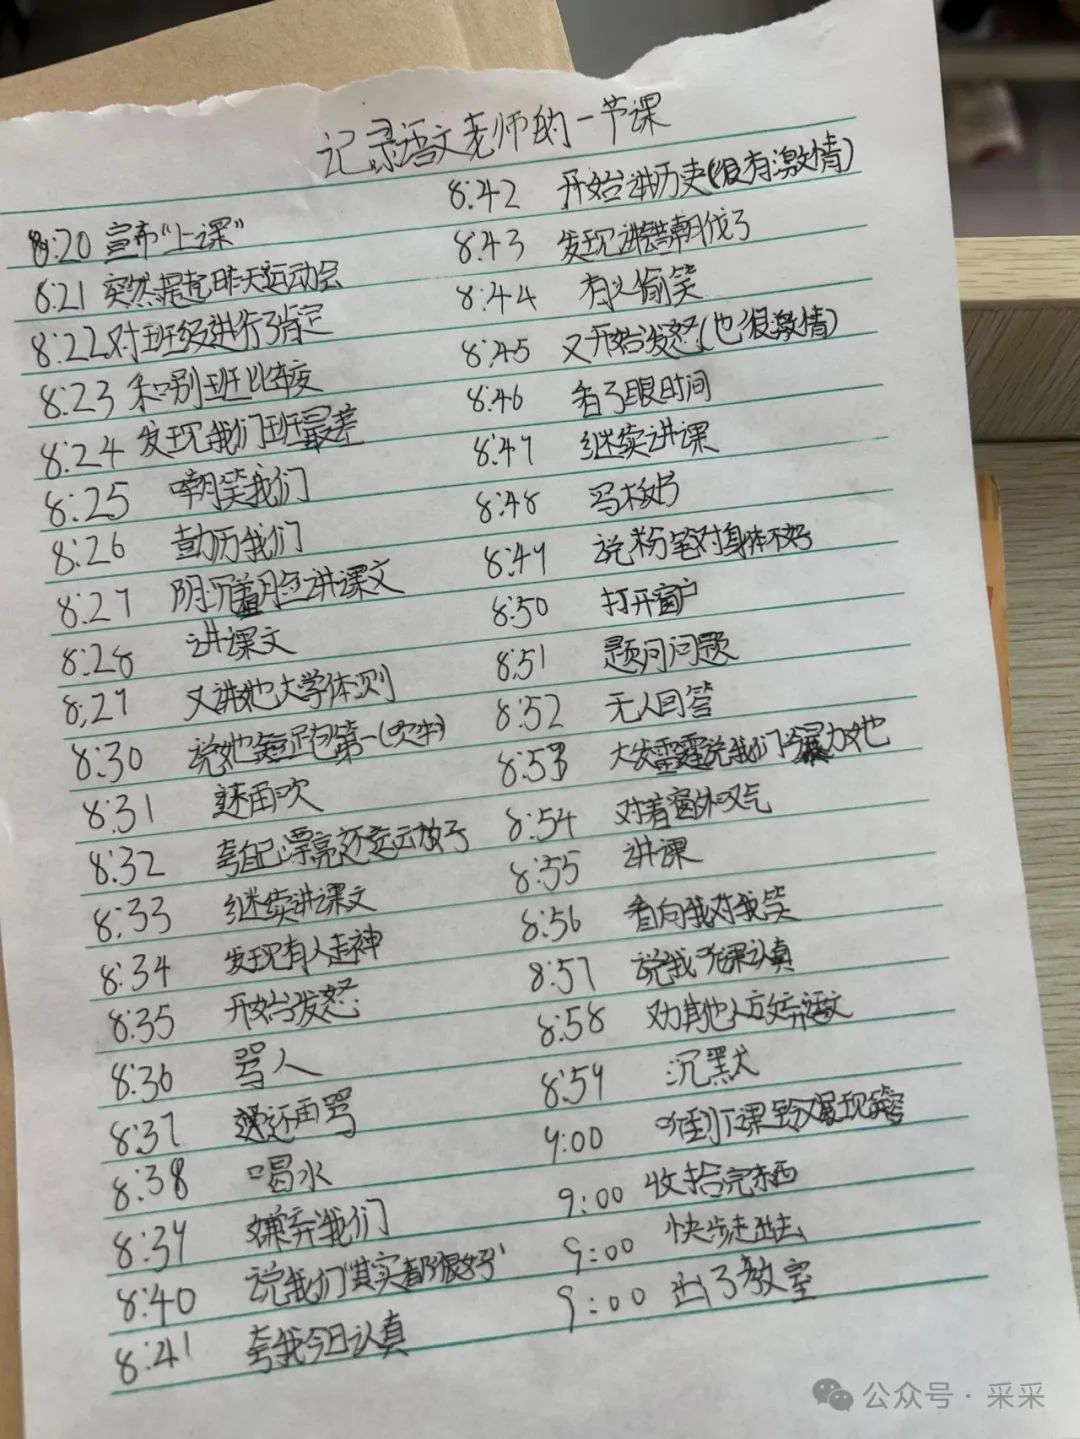 记录语文老师的一节课
8:20 宣布“上课”
8:21 突然提起昨天运动会
8:22 对班级进行了肯定
8:23 和别班比较
8:24 发现我们班最差
8:25 嘲笑我们
8:26 勉励我们
8:27 阴沉着脸讲课文
8:28 讲课文
8:29 又讲她大学体测
8:30 说她短跑第一(吹牛)
8:31 还再吹
8:32 夸自己漂亮还运云放子
8:33 继续讲课文
8:34 发现有人走神
8:35 开始发怒
8:36 骂人
8:37 还再骂
8:38 喝水
8:39 嫌弃我们
8:40 说我们“其实都很好”
8:41 夸我今日认真
8:42 开始讲历史(很有激情)
8:43 发现讲错朝代了
8:44 有人偷笑
8:45 又开始发怒(也很激情)
8:46 看了眼时间
8:47 继续讲课
8:48 写板书
8:49 说粉笔对身体不好
8:50 打开窗户
8:51 题问问题
8:52 无人回答
8:53 大发雷霆说我们冷暴力她
8:54 对着窗外叹气
8:55 讲课
8:56 看向我对我笑
8:57 说我听课认真
8:58 劝其他人放弃语文
8:59 沉默
9:00 听到下课铃又展现笑容
9:00 收拾完东西
9:00 快步走出去
9:00 出了教室
公众号·采采